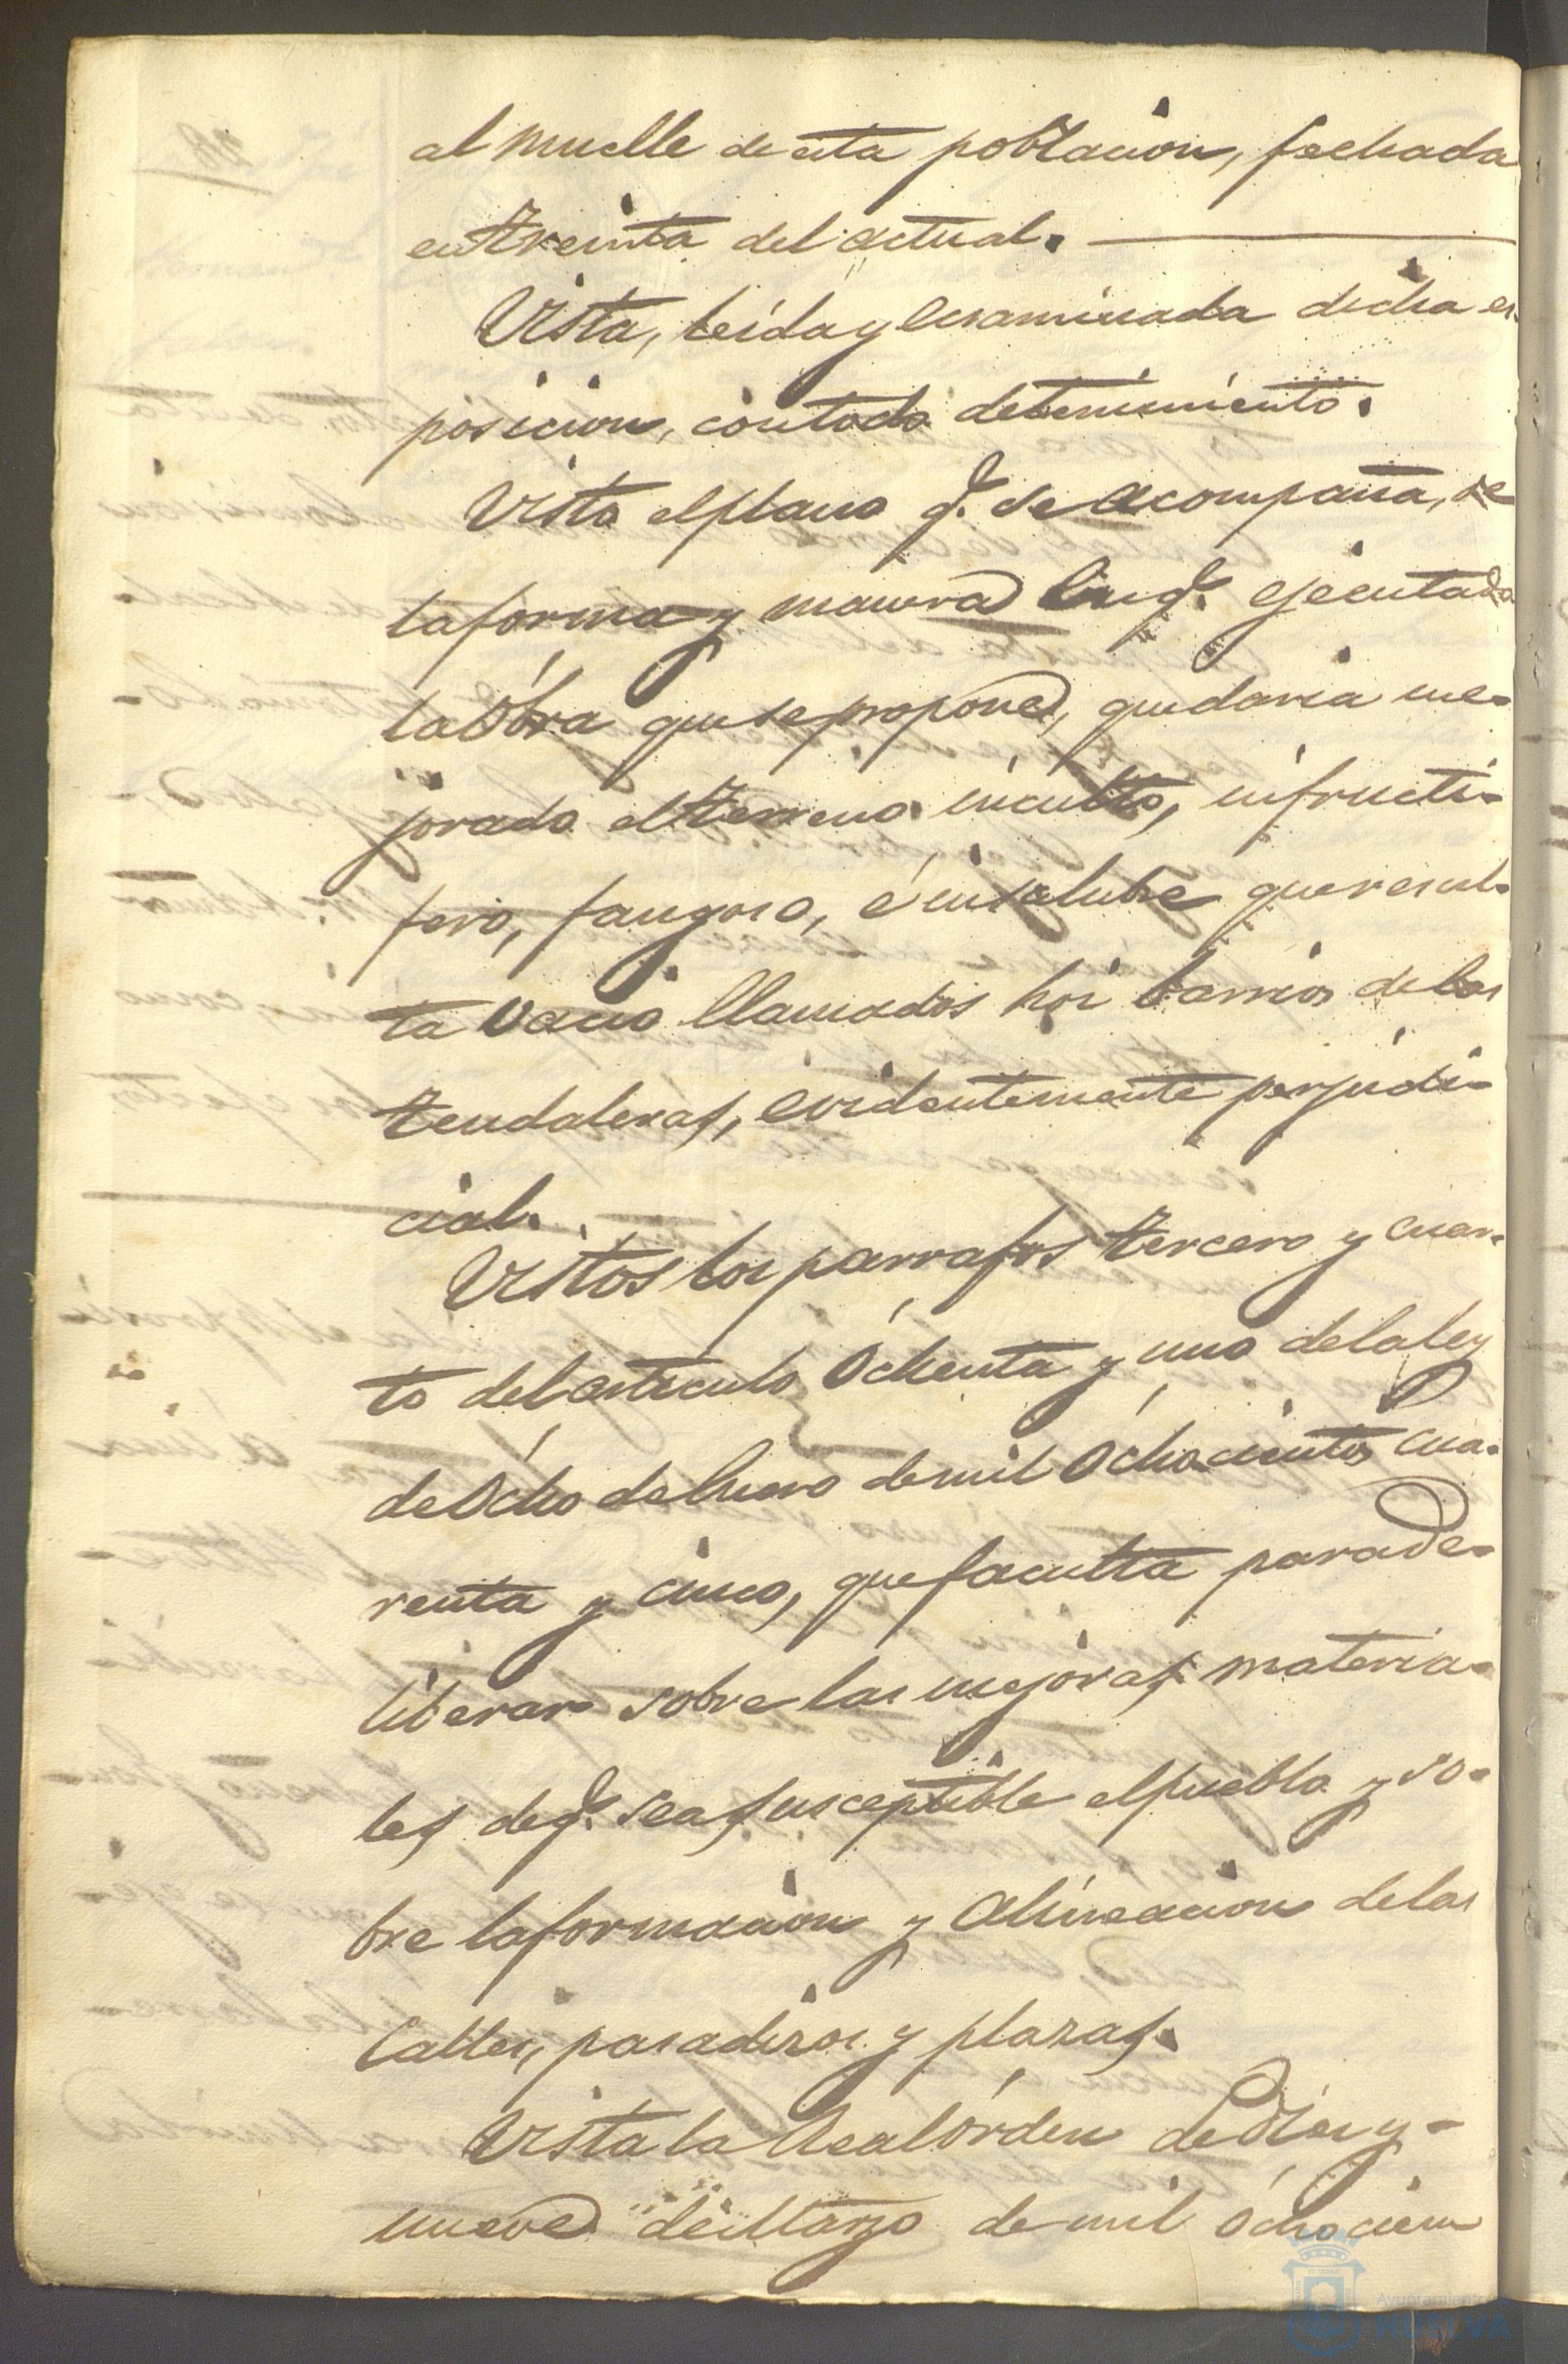 al muelle de esta poblacion, fechada
en treinta del actual.
Vista, leida y ecsaminada dicha es-
posicion, con todo detenimiento.
Visto el plano q.e se acompaña, de
la forma y manera en q.e ejecutada
la óbra que se propone, quedaria me-
jorado el terreno inculto, infructi-
fero, fangoso, é insalubre que resul-
ta vacio llamados hoi barrios de las
tendaleras, evidentemente perjudi-
cial.
Vistos los parrafos tercero y cuar-
to del articulo óchenta y uno de la ley
de ócho de Enero de mil óchocientos cua-
renta y cinco, que faculta para de-
liberar sobre las mejoras materia-
les de q.e sea susceptible el pueblo y so-
bre la formacion y alineacion de las
Calles, pasadizos y plazas.
Vista la Real órden de diez y-
nueve de Marzo de mil óchocien
Ayuntamiento
HUELVA